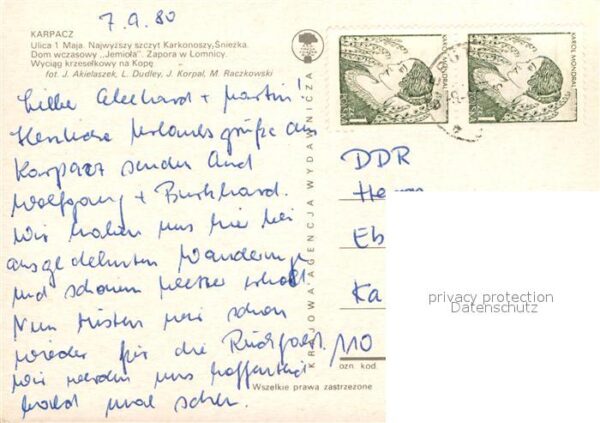 7.9.80
KARPACZ
Ulica 1 Maja. Najwyższy szczyt Karkonoszy, Śnieżka.
Dom wczasowy „Jemioła". Zapora w Łomnicy.
Wyciąg krzesełkowy na Kopę
fot. J. Akielaszek, L. Dudley, J. Korpal, M. Raczkowski
Liebe + Martin!
Herzliche Urlaubsgrüße aus
Karpacz senden Euch
Wolfgang + Burkhard.
Wir haben uns hier bei
ausgedehnten Wanderungen
und schönem Wetter erholt.
Nun rüsten wir schon
wieder für die Rückfahrt.
Wir werden uns hoffentlich
bald mal sehen.
KRAJOWA AGENCJA WYDAWNICZA
KAROL MONDRAL
KAROL MONDRAL
DDR
Herrn
Eb
Ka
110
ozn. kod.
Wszelkie prawa zastrzeżone
privacy protection
Datenschutz